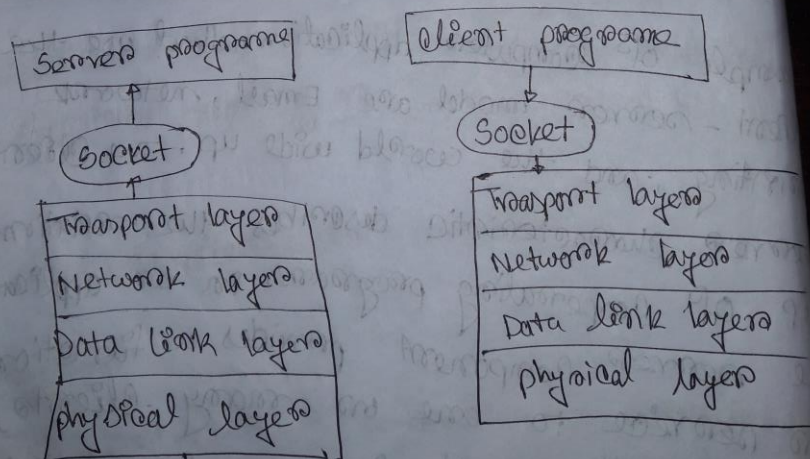 Server programe
Socket
Trasport layer
Network layer
Data link layer
physical layer
Client programe
Socket
Trasport layer
Network layer
Data link layer
physical layer